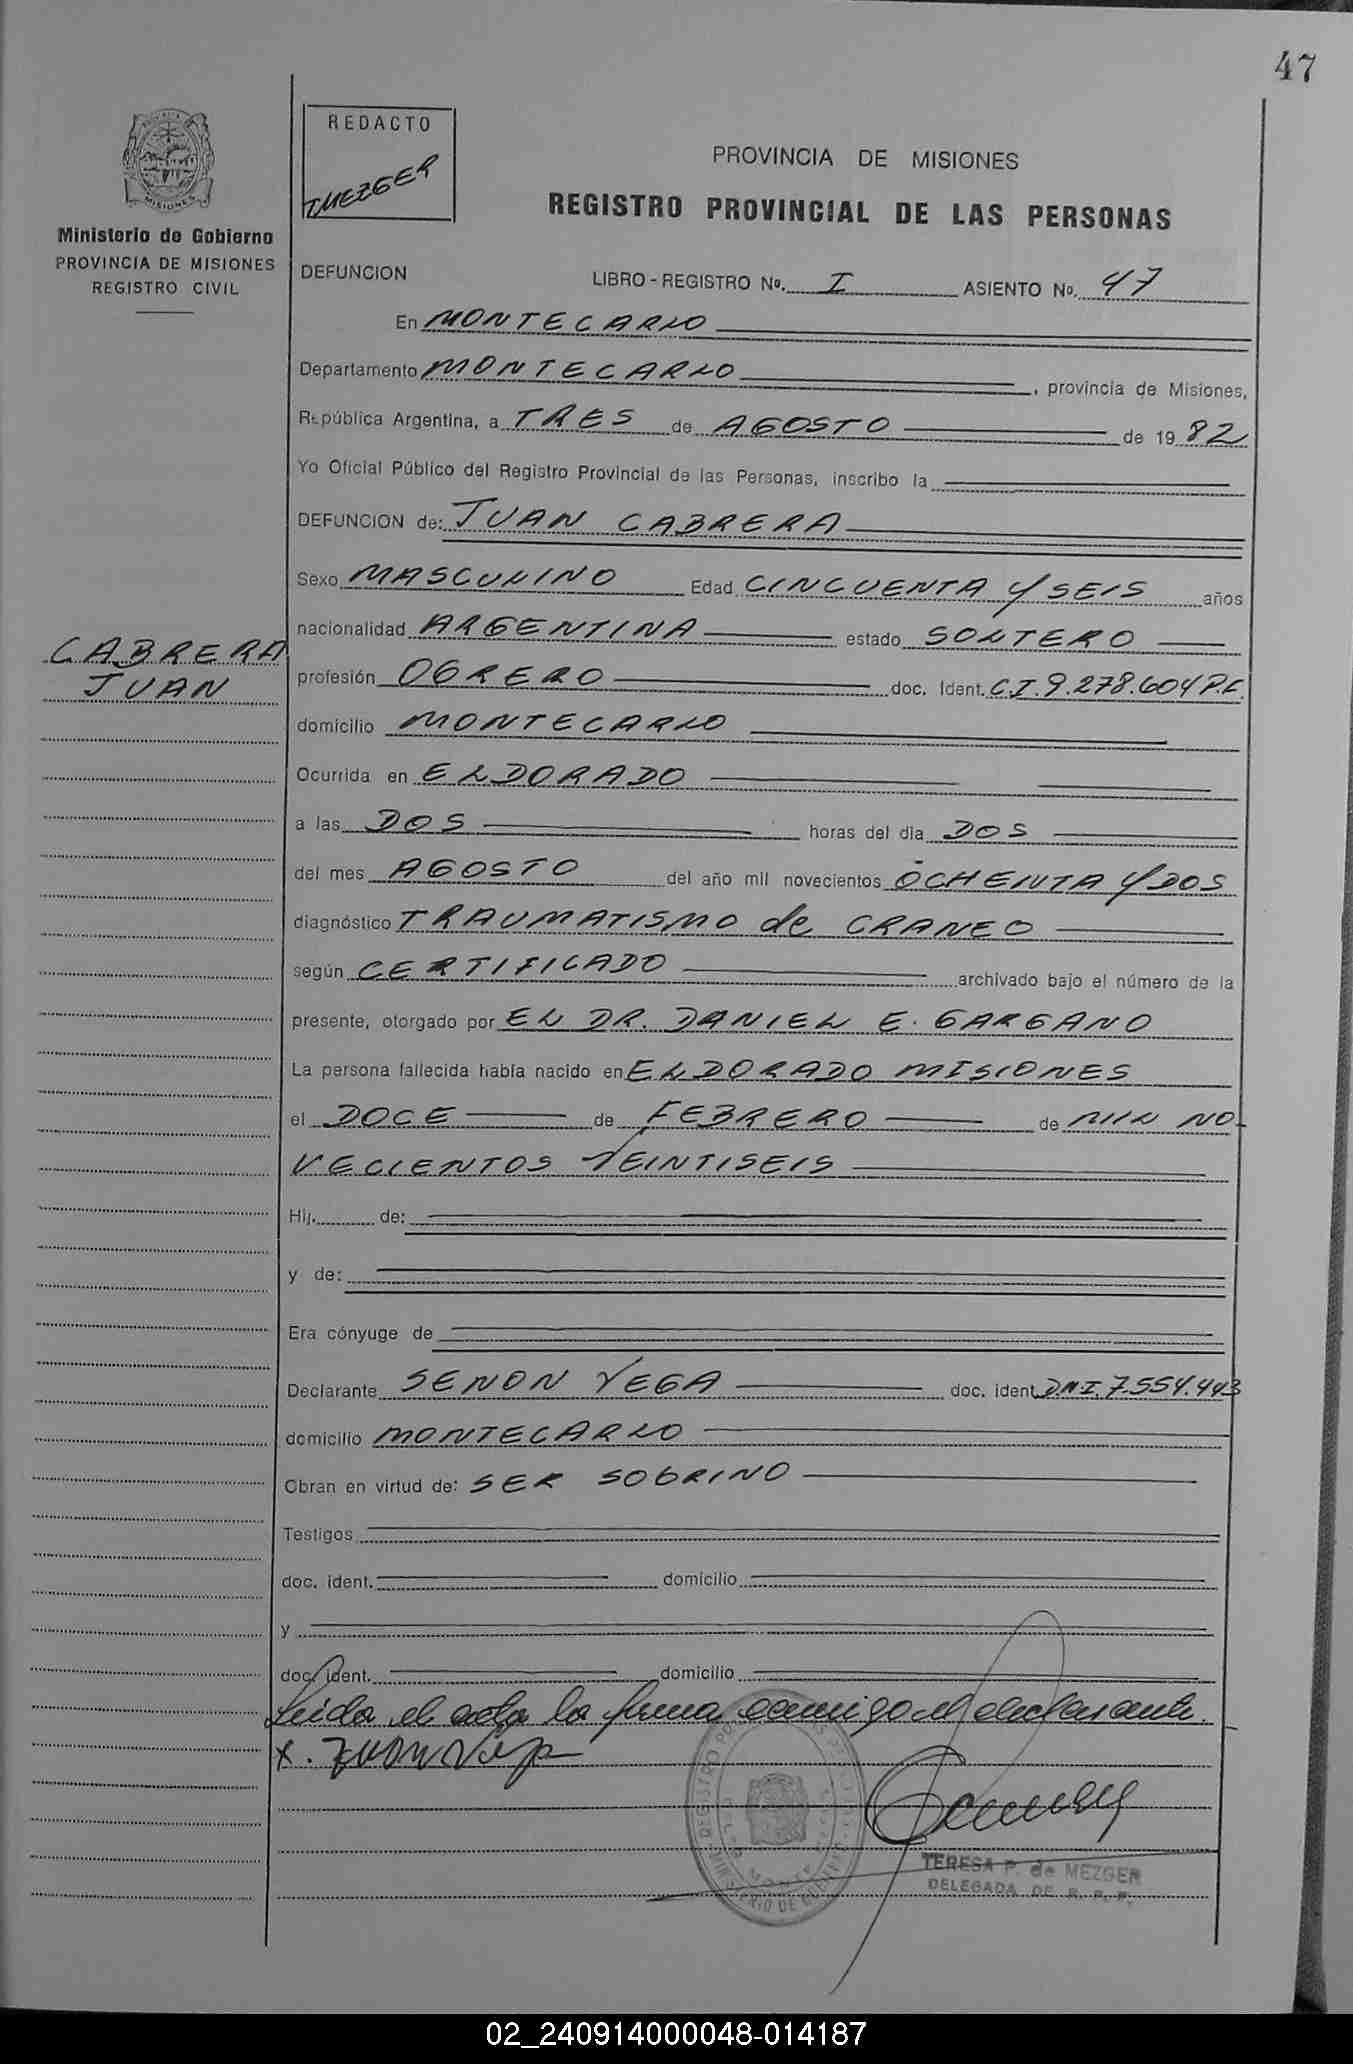 47
REDACTO
T.MEZGER
PROVINCIA DE MISIONES
REGISTRO PROVINCIAL DE LAS PERSONAS
MISIONES
Ministerio de Gobierno
PROVINCIA DE MISIONES
REGISTRO CIVIL
DEFUNCION LIBRO - REGISTRO No. I ASIENTO No. 47
En MONTECARLO
Departamento MONTECARLO, provincia de Misiones,
República Argentina, a TRES de AGOSTO de 1982
Yo Oficial Público del Registro Provincial de las Personas, inscribo la
DEFUNCION de: JUAN CABRERA
Sexo MASCULINO Edad CINCUENTA Y SEIS años
nacionalidad ARGENTINA estado SOLTERO
CABRERA
JUAN
profesión OBRERO doc. Ident. C.I. 9.278.604 P.F.
domicilio MONTECARLO
Ocurrida en ELDORADO
a las DOS horas del día DOS
del mes AGOSTO del año mil novecientos OCHENTA Y DOS
diagnóstico TRAUMATISMO de CRANEO
según CERTIFICADO archivado bajo el número de la
presente, otorgado por EL DR. DANIEL E. GARGANO
La persona fallecida había nacido en ELDORADO MISIONES
el DOCE de FEBRERO de MIL NO-
VECIENTOS VEINTISEIS
Hij. de:
y de:
Era cónyuge de
Declarante SENON VEGA doc. ident. D.N.I. 7.554.443
domicilio MONTECARLO
Obran en virtud de: SER SOBRINO
Testigos
doc. ident. domicilio
y
doc. ident. domicilio
Leida el acta la firma conmigo el declarante.
X.
TERESA P. de MEZGER
DELEGADA DE R. P. P.
02_240914000048-014187